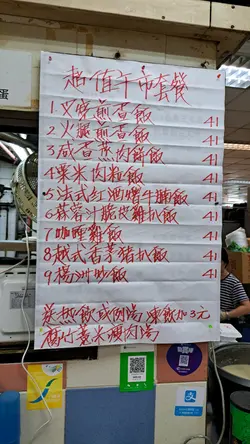 超值午市套餐
1 叉燒煎旦飯 41
2 火腿煎旦飯 41
3 咸旦蒸肉餅飯 41
4 粟米肉粒飯 41
5 法式红酒燴牛腩飯 41
6 蒜容汁脆皮雞扒飯 41
7 咖喱雞飯 41
8 越式香茅豬扒飯 41
9 楊洲炒飯 41
送热飲或肉湯 凍飲加3元
腐竹薏米瘦肉湯
蛋